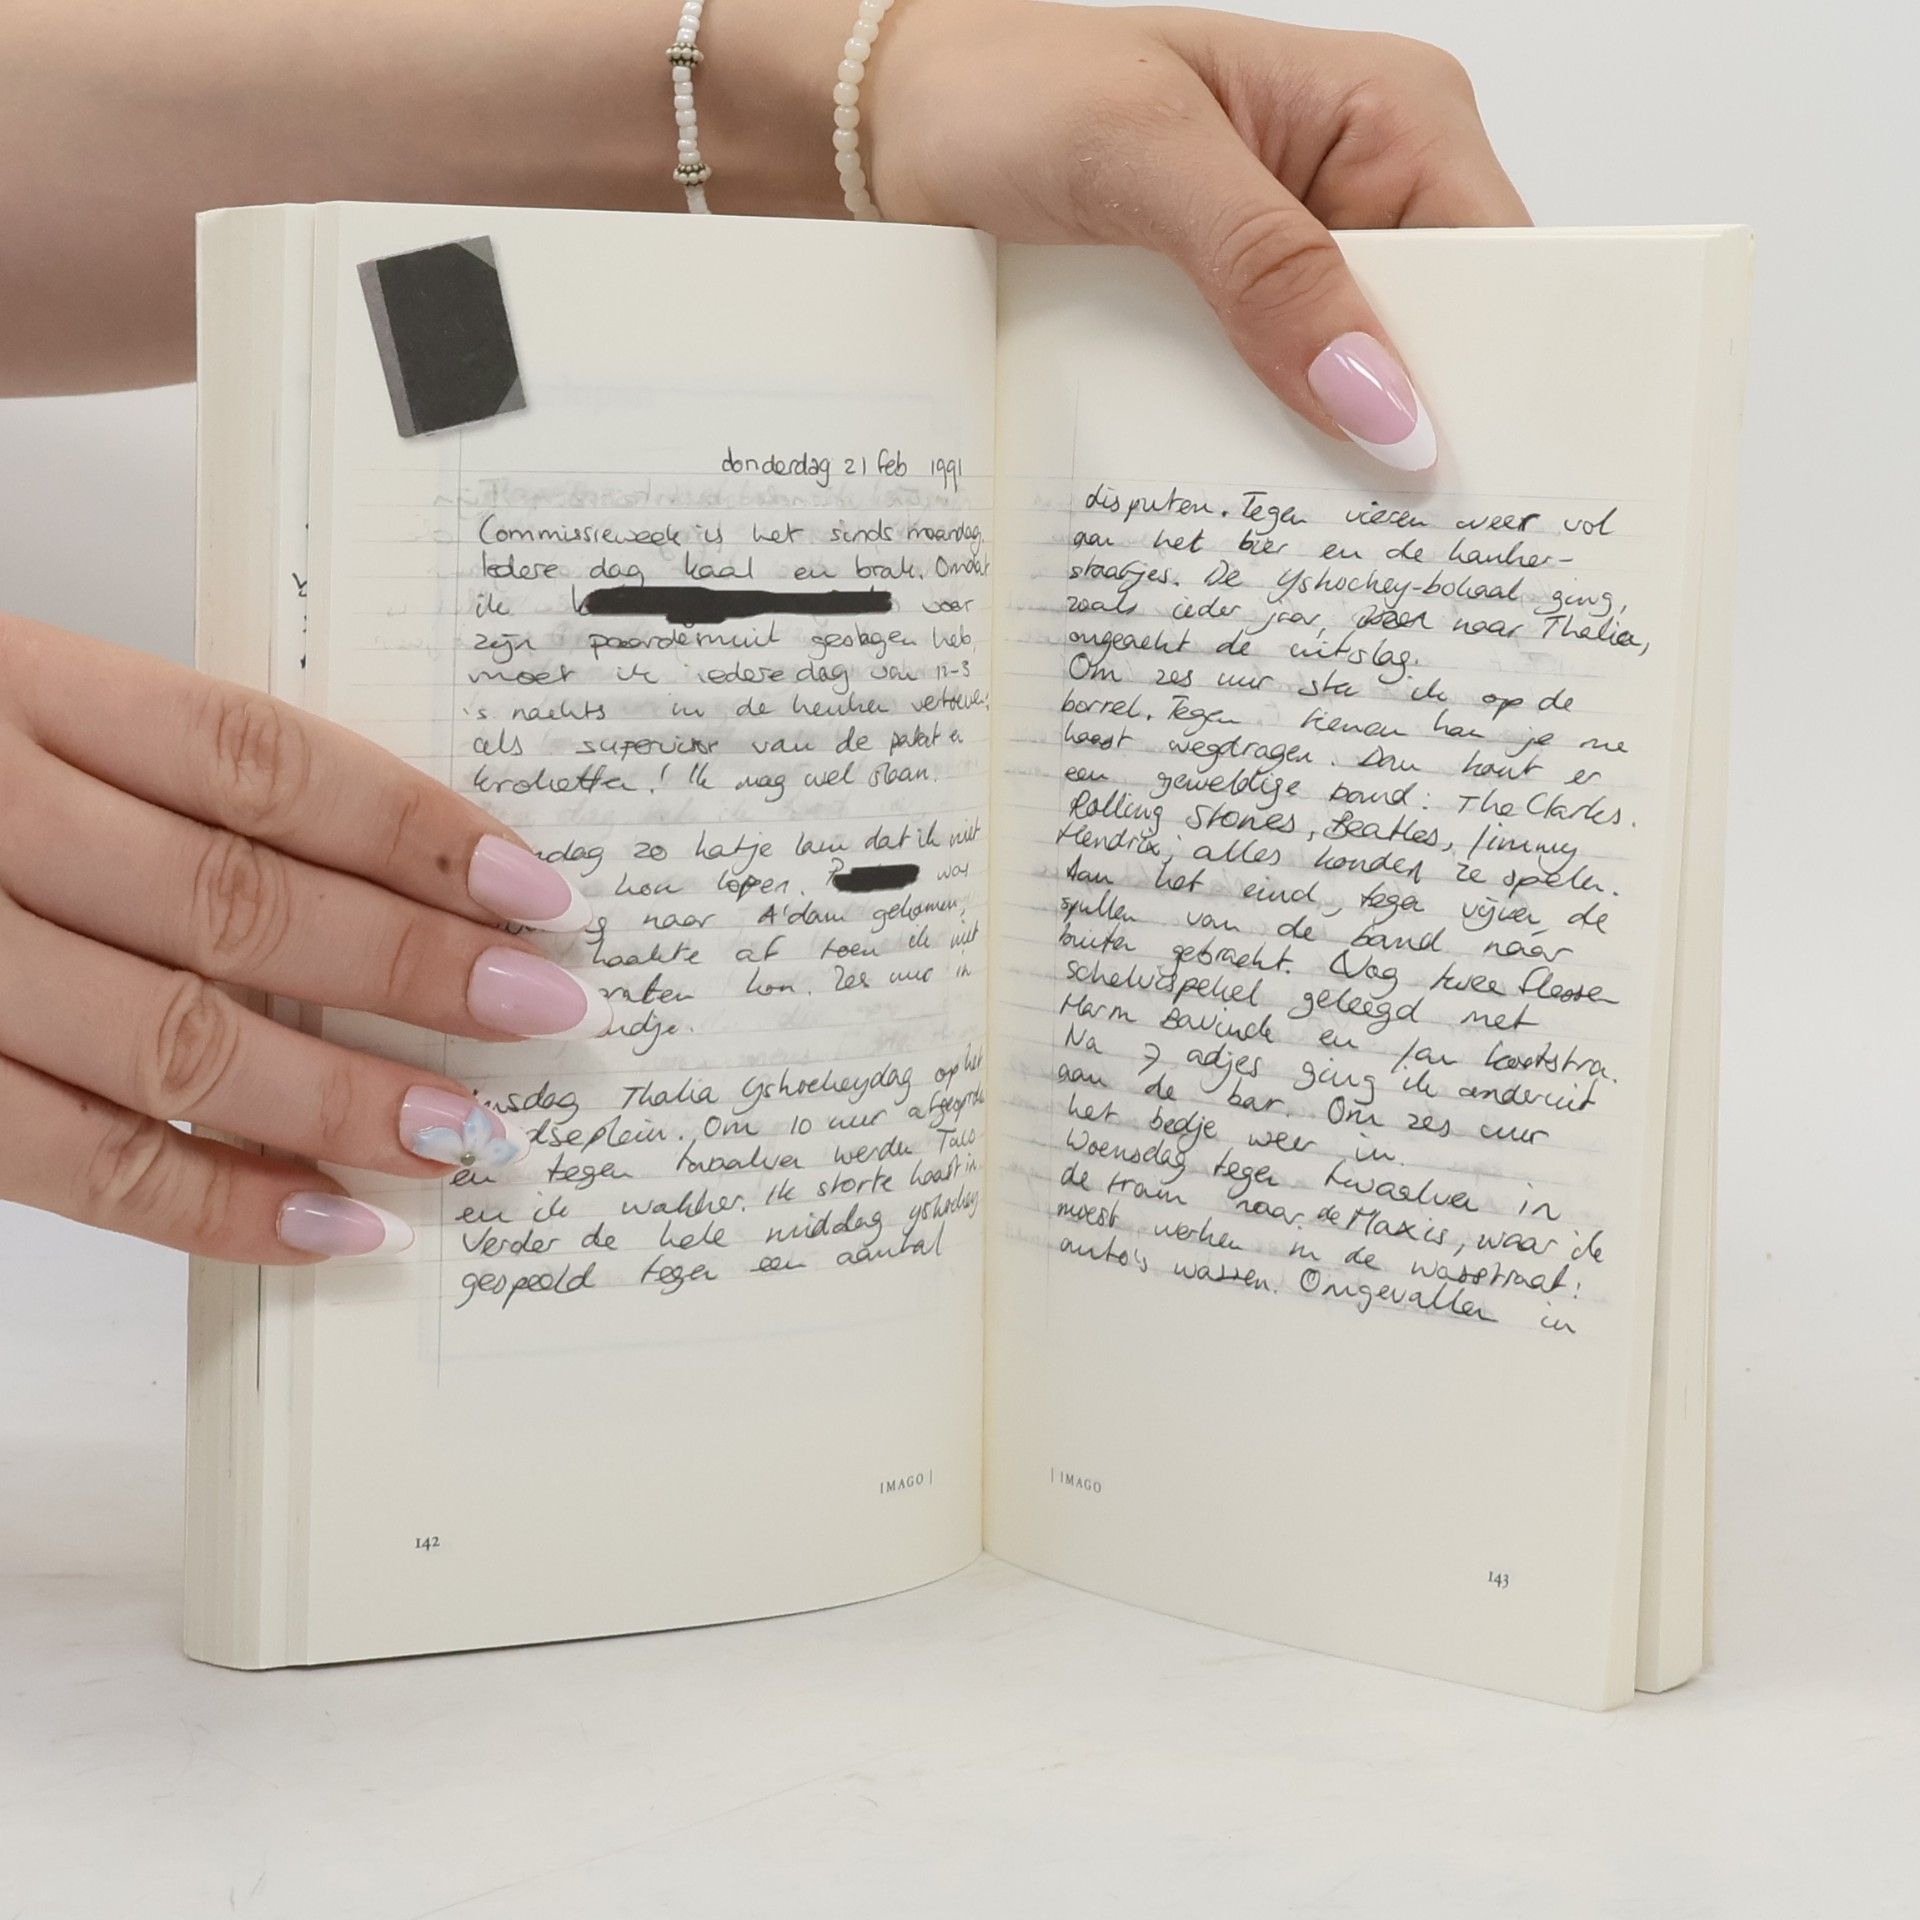 donderdag 21 feb 1991
Commissieweek is het sinds maandag.
Iedere dag kaal en brak. Omdat
ik voor
zijn paardemuil geslagen heb,
moet ik iedere dag van 11-3
's nachts in de keuken vertoeven:
als supervisor van de patat en
kroketten! Ik mag wel slaan.
ndag 20 katje lam dat ik niet
kon lopen. was
naar A'dam gekomen,
haakte af toen ik niet
praten kon. Zes uur in
ndje.
nsdag Thalia Yshockeydag op het
dseplein. Om 10 uur afgesproken
en tegen twaalven werden Taco
en ik wakker. Ik stortte haast in.
Verder de hele middag yshockey
gespeeld tegen een aantal
disputen. Tegen vieren weer vol
aan het bier en de kanker-
staafjes. De Yshockey-bokaal ging,
zoals ieder jaar, naar Thalia,
ongeacht de uitslag.
Om zes uur sta ik op de
borrel. Tegen tienen kan je me
haast wegdragen. Dan komt er
een geweldige band: The Clarks.
Rolling Stones, Beatles, Jimmy
Hendrix, alles konden ze spelen.
Aan het eind, tegen vijven de
spullen van de band naar
buiten gebracht. Nog twee flessen
schelvispekel geleegd met
Harm Bavinck en Jan Kootstra.
Na 7 adjes ging ik onderuit
aan de bar. Om zes uur
het bedje weer in.
Woensdag tegen twaalven in
de train naar de Maxis, waar ik
moest werken in de wasstraat:
auto's wassen. Omgevallen in
IMAGO |
| IMAGO
142
143